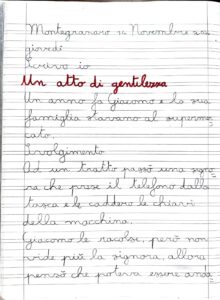 Montegranaro 14 Novembre 202
giovedì
Scrivo io
Un atto di gentilezza
Un anno fa Giacomo e la sua
famiglia stavano al superme
cato.
Svolgimento
Ad un tratto passò una signo
ra che prese il telefono dalla
tasca e le caddero le chiavi
della macchina.
Giacomo le racolse, però non
vide più la signora, allora
pensò che poteva essere anda